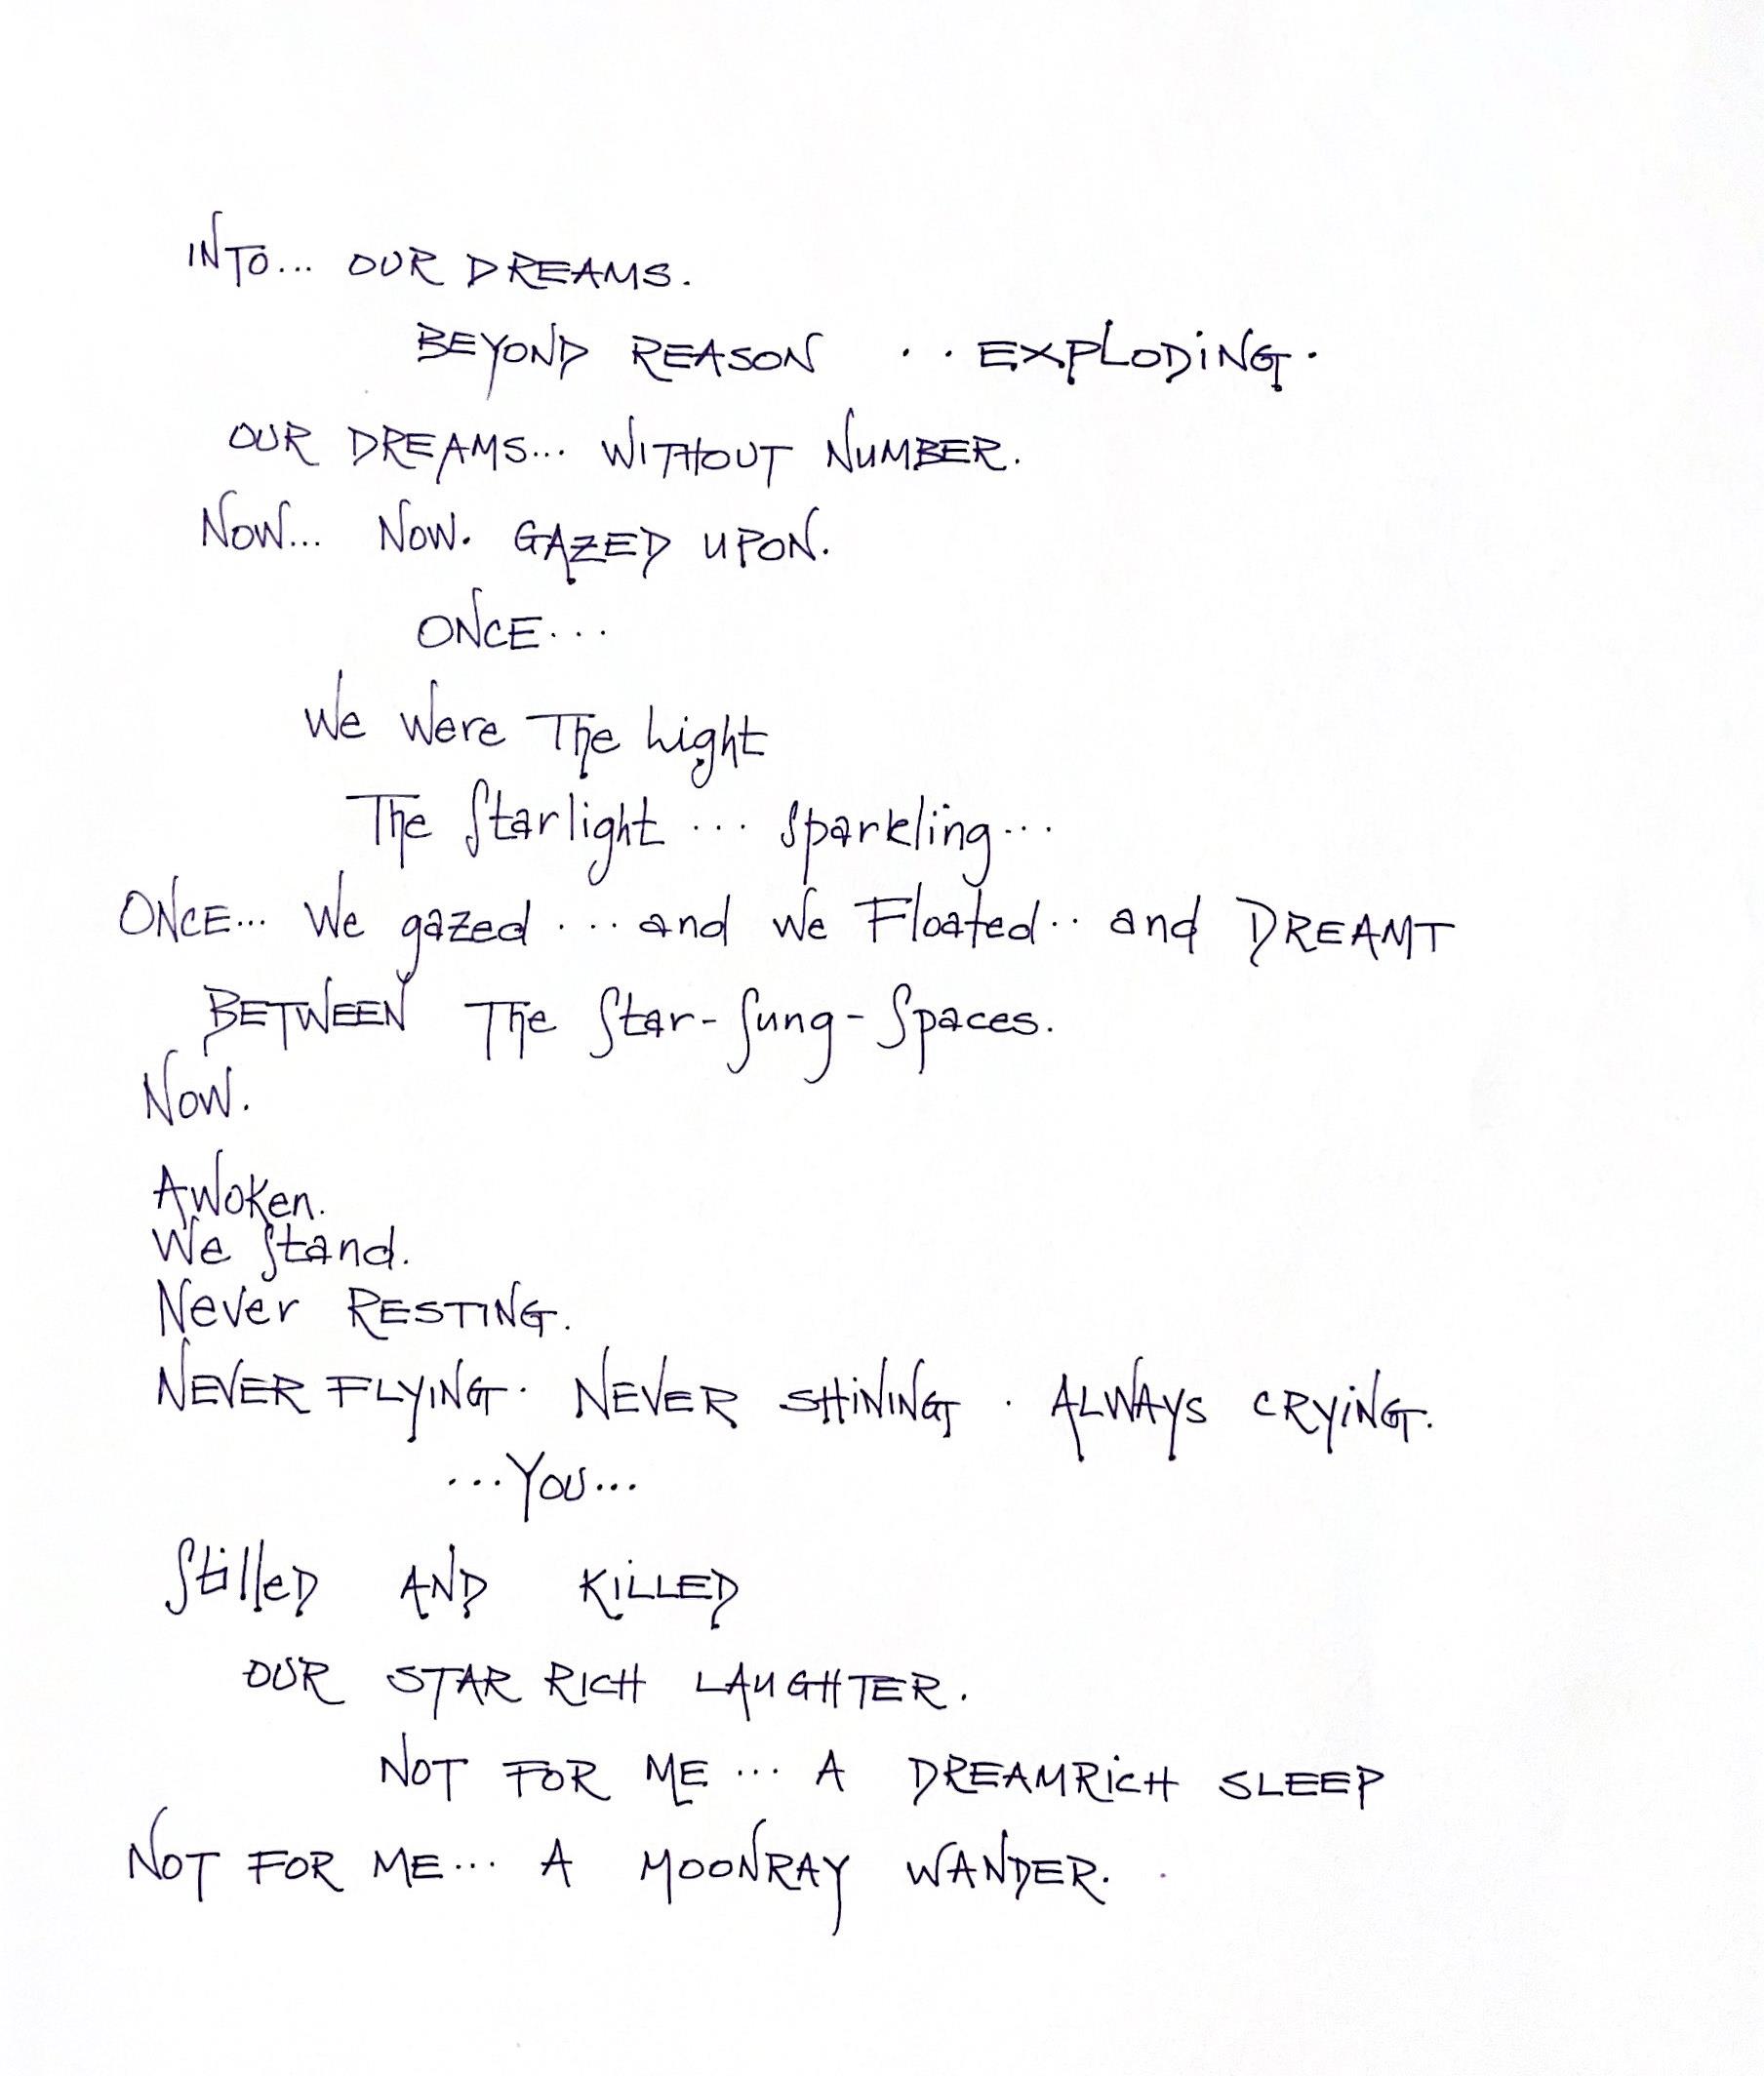 INTO... OUR DREAMS.
BEYOND REASON .. EXPLODING.
OUR DREAMS... WITHOUT NUMBER.
NOW... NOW. GAZED UPON.
ONCE...
We Were The Light
The Starlight ... Sparkling...
ONCE... We gazed ... and We Floated.. and DREAMT
BETWEEN The Star-Sung-Spaces.
NOW.
AWoKen.
We Stand.
Never RESTING.
NEVER FLYING. NEVER SHINING. ALWAYS CRYING.
...YOU...
StilleD AND KILLED
OUR STAR RICH LAUGHTER.
NOT FOR ME ... A DREAMRICH SLEEP
NOT FOR ME... A MOONRAY WANDER.